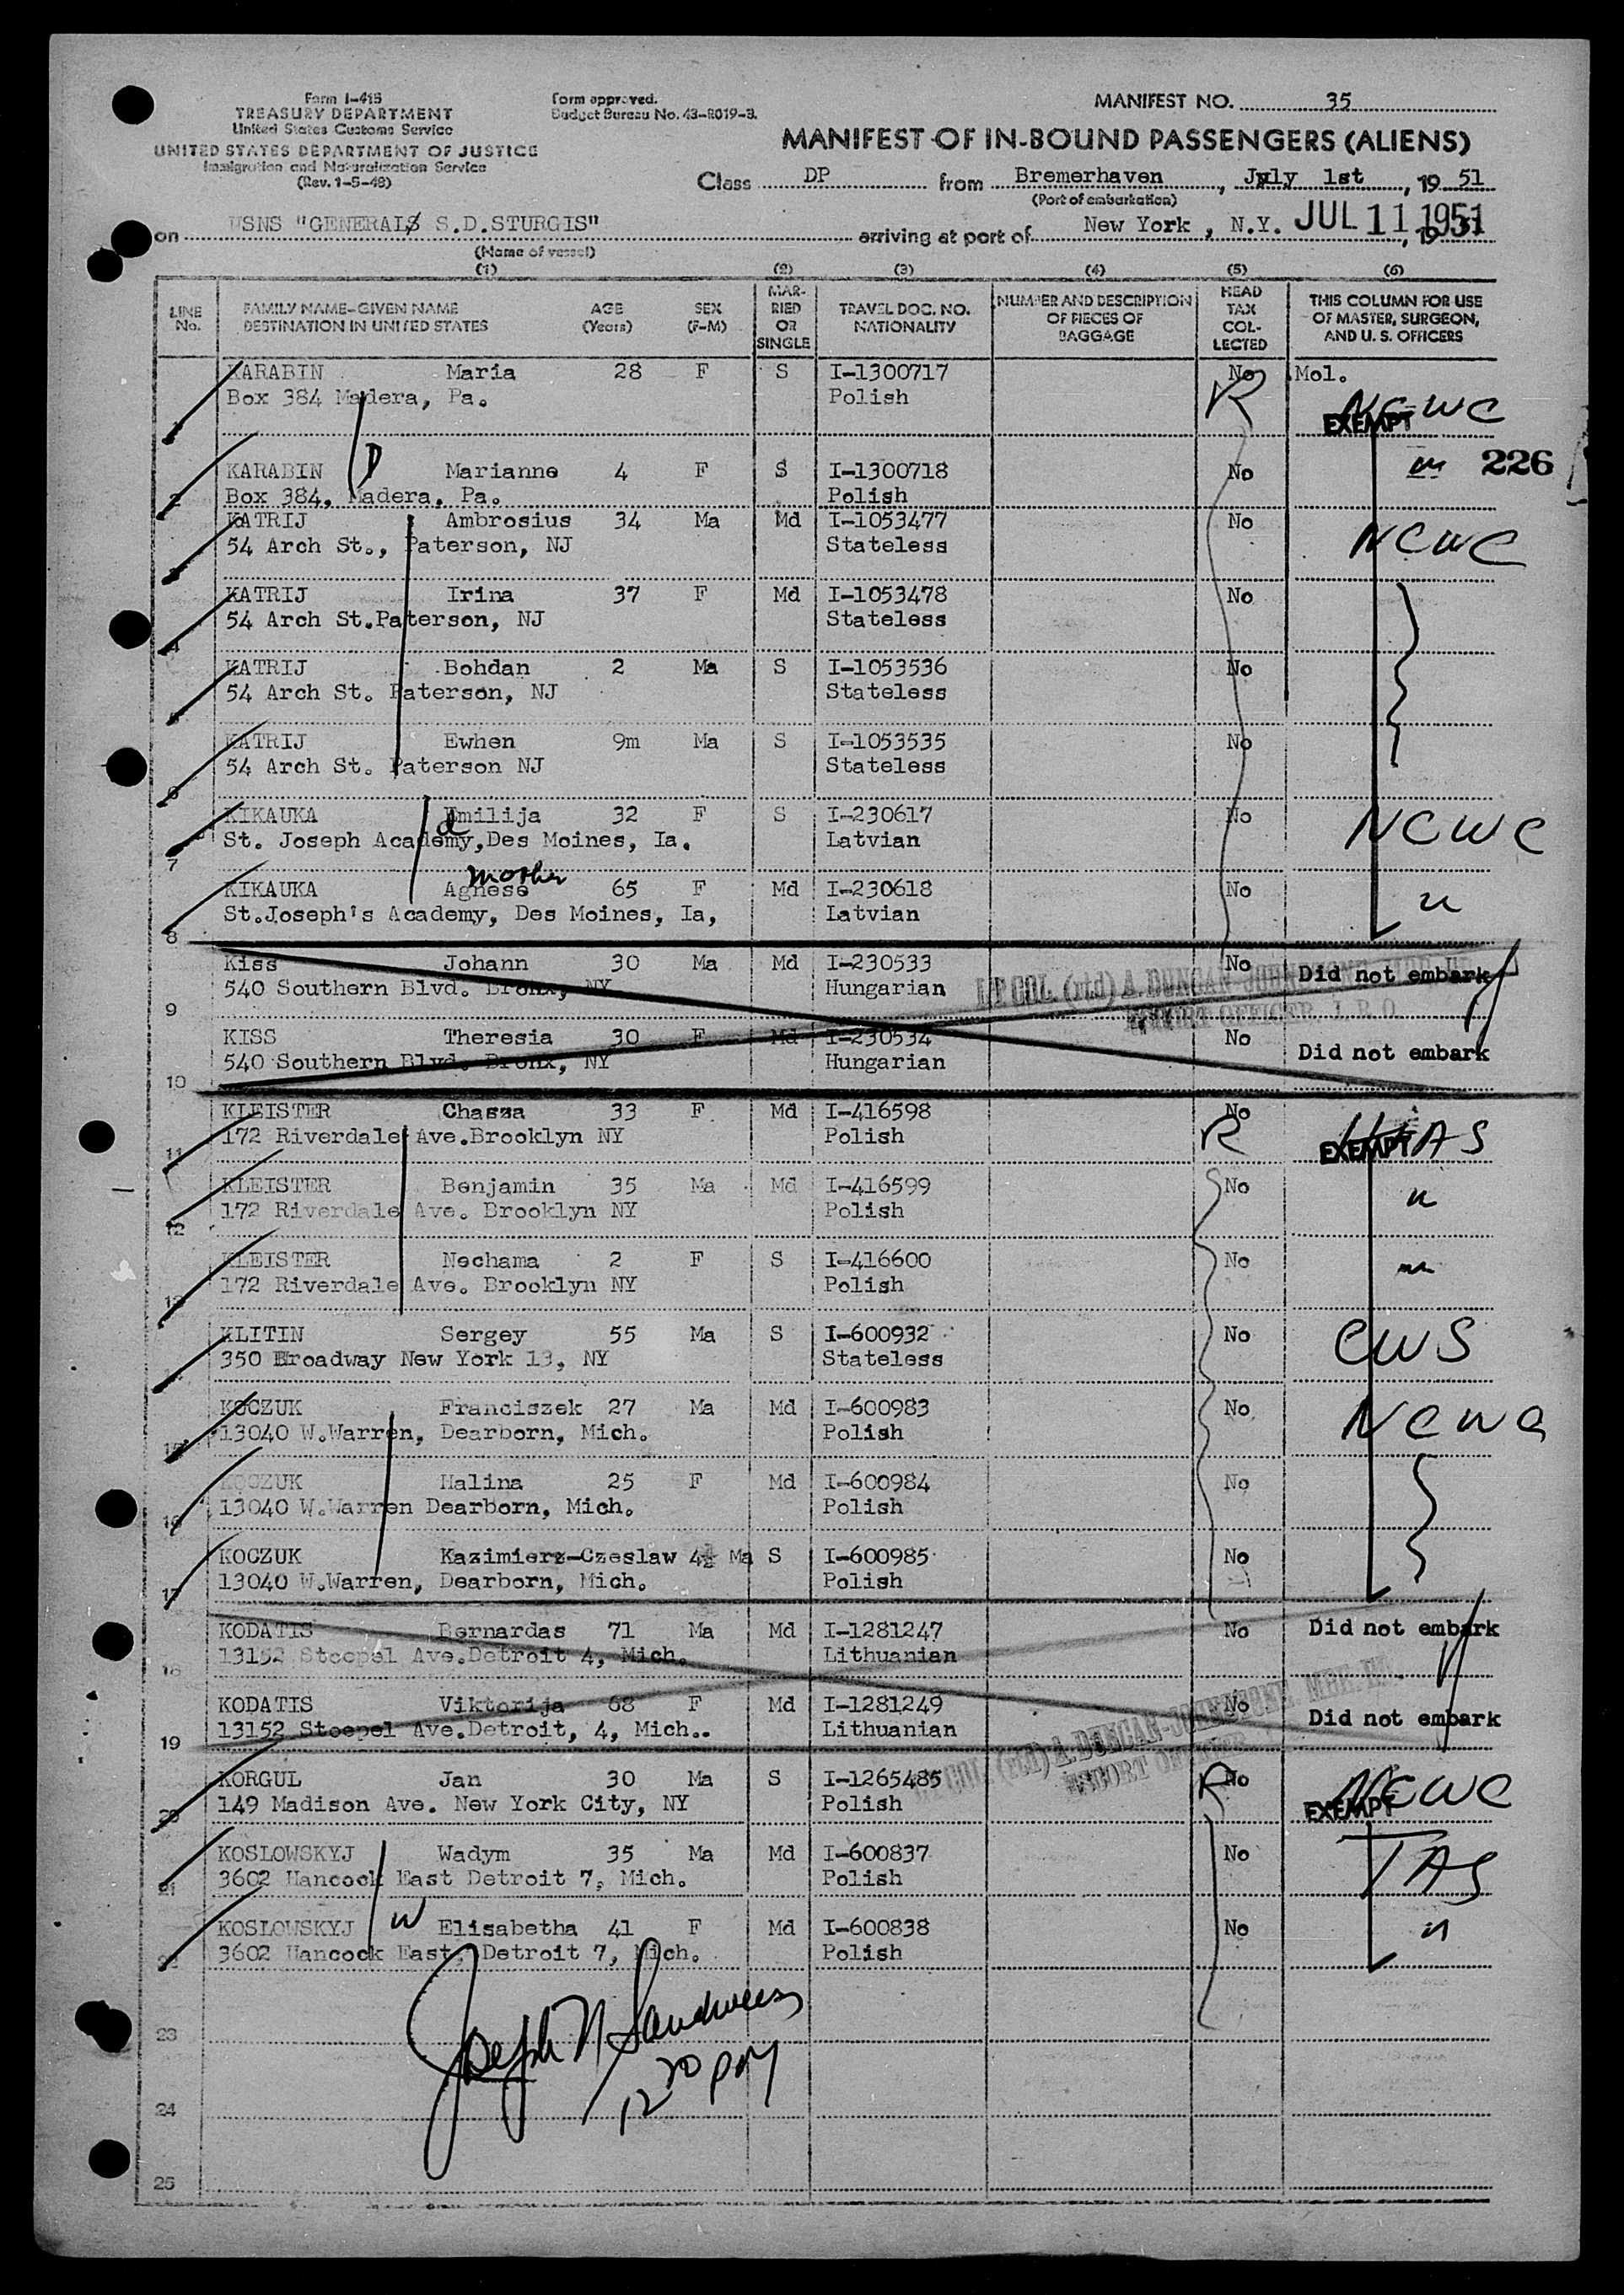 Form I-415
TREASURY DEPARTMENT
United States Customs Service
UNITED STATES DEPARTMENT OF JUSTICE
Immigration and Naturalization Service
(Rev. 1-5-48)
Form approved.
Budget Bureau No. 43-R019-3.
MANIFEST NO. 35
MANIFEST OF IN-BOUND PASSENGERS (ALIENS)
Class DP from Bremerhaven, July 1st, 19 51
(Port of embarkation)
on USNS "GENERAL S.D.STURGIS" arriving at port of New York, N.Y. JUL 11 1951, 19
(Name of vessel)
(1) (2) (3) (4) (5) (6)
LINE No. FAMILY NAME-GIVEN NAME DESTINATION IN UNITED STATES AGE (Years) SEX (F-M) MARRIED OR SINGLE TRAVEL DOC. NO. NATIONALITY NUMBER AND DESCRIPTION OF PIECES OF BAGGAGE HEAD TAX COLLECTED THIS COLUMN FOR USE OF MASTER, SURGEON, AND U. S. OFFICERS
KARABIN Maria 28 F S I-1300717 No Mol.
Box 384 Madera, Pa. Polish R NCWC EXEMPT
226
2 KARABIN D Marianne 4 F S I-1300718 No "
Box 384, Madera, Pa. Polish
KATRIJ Ambrosius 34 Ma Md I-1053477 No NCWC
54 Arch St., Paterson, NJ Stateless
KATRIJ Irina 37 F Md I-1053478 No
54 Arch St.Paterson, NJ Stateless
KATRIJ Bohdan 2 Ma S I-1053536 No
54 Arch St. Paterson, NJ Stateless
6 KATRIJ Ewhen 9m Ma S I-1053535 No
54 Arch St. Paterson NJ Stateless
7 KIKAUKA Emilija 32 F S I-230617 No NCWC
d
St. Joseph Academy,Des Moines, Ia. Latvian
mother
8 KIKAUKA Agnese 65 F Md I-230618 No "
St.Joseph's Academy, Des Moines, Ia, Latvian
9 Kiss Johann 30 Ma Md I-230533 No Did not embark
540 Southern Blvd. Bronx, NY Hungarian
LT COL. (rtd) A. DUNCAN-JOHNSTONE MBR. IN
ESCORT OFFICER I.R.O.
10 KISS Theresia 30 F Md I-230534 No Did not embark
540 Southern Blvd. Bronx, NY Hungarian
11 KLEISTER Chasza 33 F Md I-416598 No
172 Riverdale Ave.Brooklyn NY Polish R HIAS EXEMPT
12 KLEISTER Benjamin 35 Ma Md I-416599 No "
172 Riverdale Ave. Brooklyn NY Polish
13 KLEISTER Nechama 2 F S I-416600 No "
172 Riverdale Ave. Brooklyn NY Polish
KLITIN Sergey 55 Ma S I-600932 No CWS
350 Broadway New York 13, NY Stateless
15 KOCZUK Franciszek 27 Ma Md I-600983 No NCWC
13040 W.Warren, Dearborn, Mich. Polish
16 KOCZUK Halina 25 F Md I-600984 No
13040 W.Warren Dearborn, Mich. Polish
17 KOCZUK Kazimierz-Czeslaw 4½ Ma S I-600985 No
13040 W.Warren, Dearborn, Mich. Polish
18 KODATIS Bernardas 71 Ma Md I-1281247 No Did not embark
13152 Stoepel Ave.Detroit 4, Mich. Lithuanian
19 KODATIS Viktorija 68 F Md I-1281249 No Did not embark
13152 Stoepel Ave.Detroit, 4, Mich.. Lithuanian
LT COL. (rtd) A. DUNCAN-JOHNSTONE MBR. IN
ESCORT OFFICER
20 KORGUL Jan 30 Ma S I-1265485 R No NCWC
149 Madison Ave. New York City, NY Polish EXEMPT
21 KOSLOWSKYJ Wadym 35 Ma Md I-600837 No TAS
3602 Hancock East Detroit 7, Mich. Polish
22 KOSLOWSKYJ W Elisabetha 41 F Md I-600838 No "
3602 Hancock East, Detroit 7, Mich. Polish
Joseph N Sandweiss
23
12 30 pm
24
25